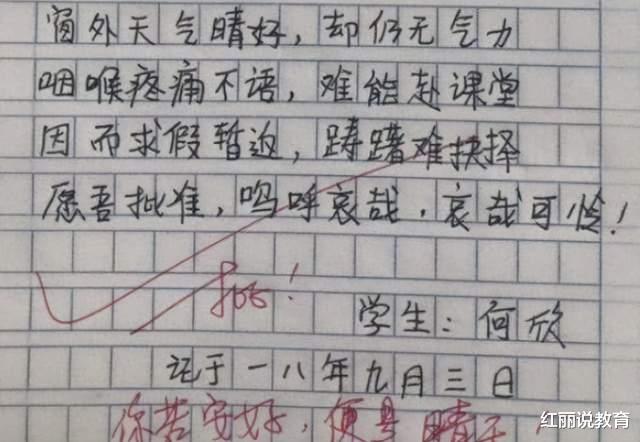 窗外天气晴好，却仍无气力
咽喉疼痛不语，难能赴课堂
因而求假暂返，踌躇难抉择
愿吾批准，呜呼哀哉，哀哉可怜！
批！
学生：何欣
记于一八年九月三日
你若安好，便是晴天
红丽说教育